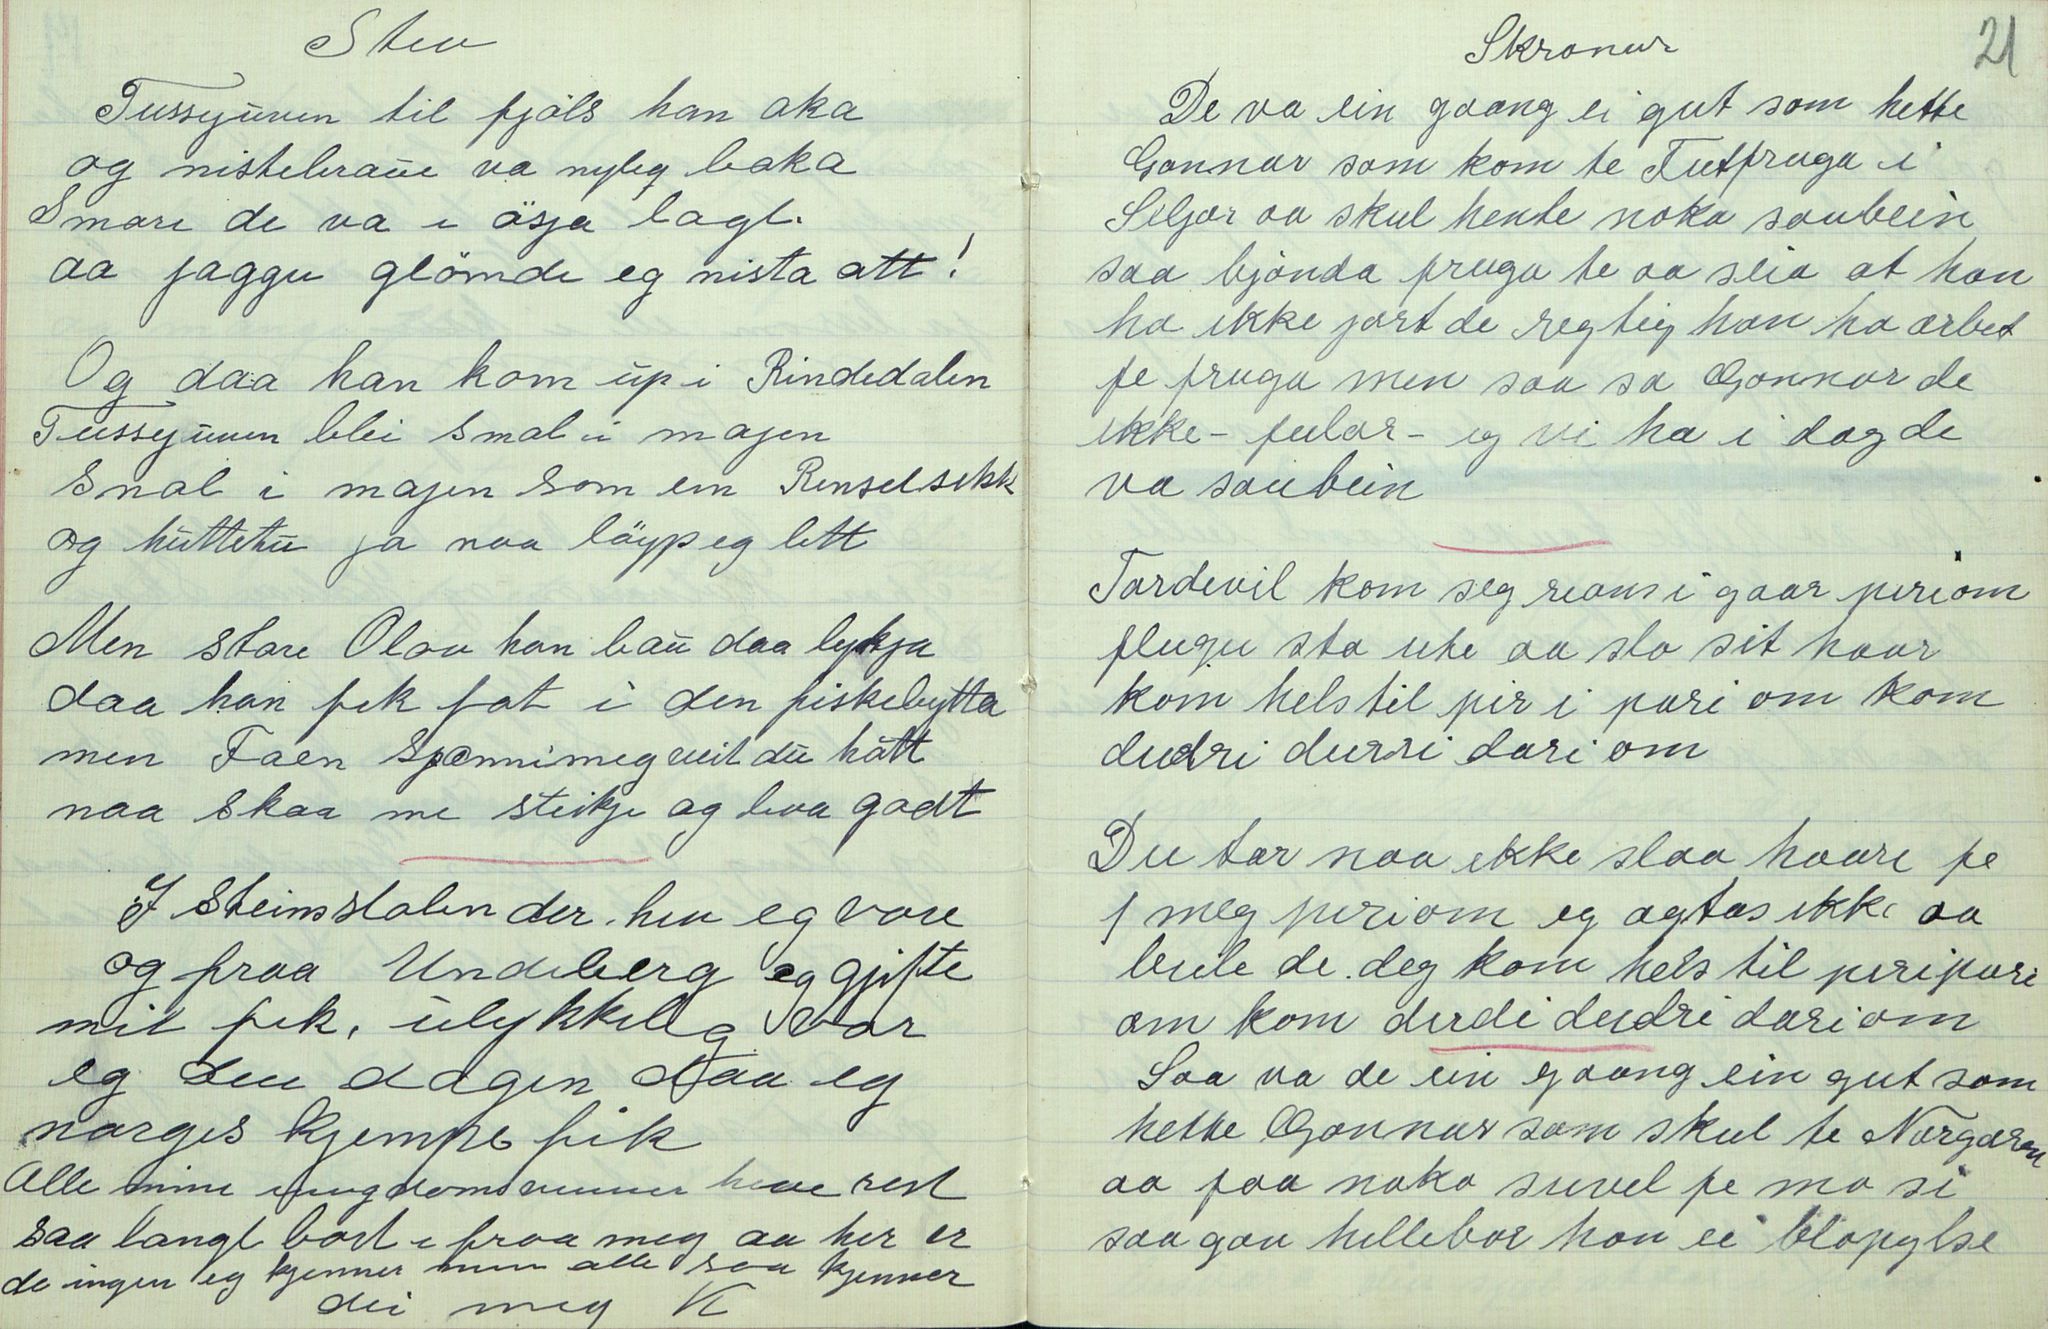 Stev
Tussejuven til fjöls han aka
og nistebraue va nyleg baka
Smöre de va i ösja lagt.
aa jaggu glömde eg nista att!
Og daa han kom up i Rindedalen
Tussejuven blei smal i majen
Smal i majen som ein Renselsekk
og huttetu ja naa löyp eg lett
Men store Olav han bau daa lykja
daa han fek fat i den fiskebytta
men Faen spenni meg veit du hått
naa skaa me steikje og leva godt
I Steinsstolen der hev eg vore
og fraa Undeberg eg gjifte
mit fek, ulykkeleg var
eg den dagen daa eg
norges kjempe fik
Alle mine ungdomsvenner heve rest
saa langt bort i fraa meg aa her er
de ingen eg kjenner men alle saa kjenner
dei meg VC
Skronur
21
De va ein gaang ei gut som hette
Gonnar som kom te Futfruga i
Seljor aa skul hente noko saubein
saa bjönda fruga te aa seia at han
ha ikke jort de regtig han ha arbet
fe fruga men saa sa Gonnar de
ikke - fular - eg vi ha i dag de
va saubein
Tordevil kom seg reans i gaar piriom
flugu sta ute aa slo sit haar
kom hels til pir i pari om kom
dudri durri dari om
Du tar naa ikke slaa haare pe
meg piriom eg agtas ikke aa
bule de deg kom hels til piripari
om kom durdi dudri dariom
Saa va de ein gaang ein gut som
hette Gonnar som skul te Norgaren
aa faa noko suvel fe mo si
saa gav hellebor han ei blopylse